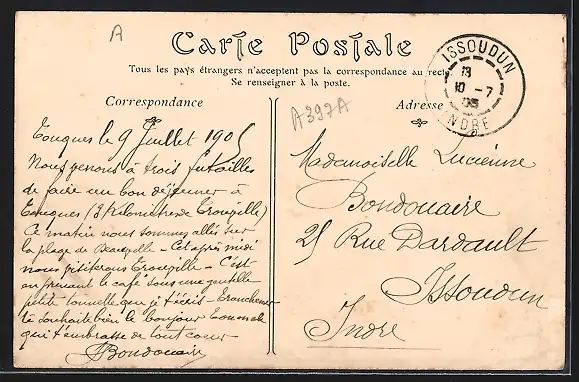 A
Carte Postale
Tous les pays étrangers n'acceptent pas la correspondance au recto.
Se renseigner à la poste.
ISSOUDUN
13
10 - 7
05
INDRE
Correspondance
A397A
Adresse
Touques le 9 Juillet 1905
Nous venons à trois
de faire un bon déjeuner à
Touques (3 Kilomètres de Trouville)
Ce matin nous sommes allés sur
la plage de Deauville - Cet après midi
nous visiterons Trouville - C'est
en prenant le café sous une gentille
petite tonnelle que je t'écris -
te souhaite bien le bonjour
qui t'embrasse de tout coeur
Bondouaire
Mademoiselle Lucienne
Bondouaire
25 Rue Dardault
Issoudun
Indre